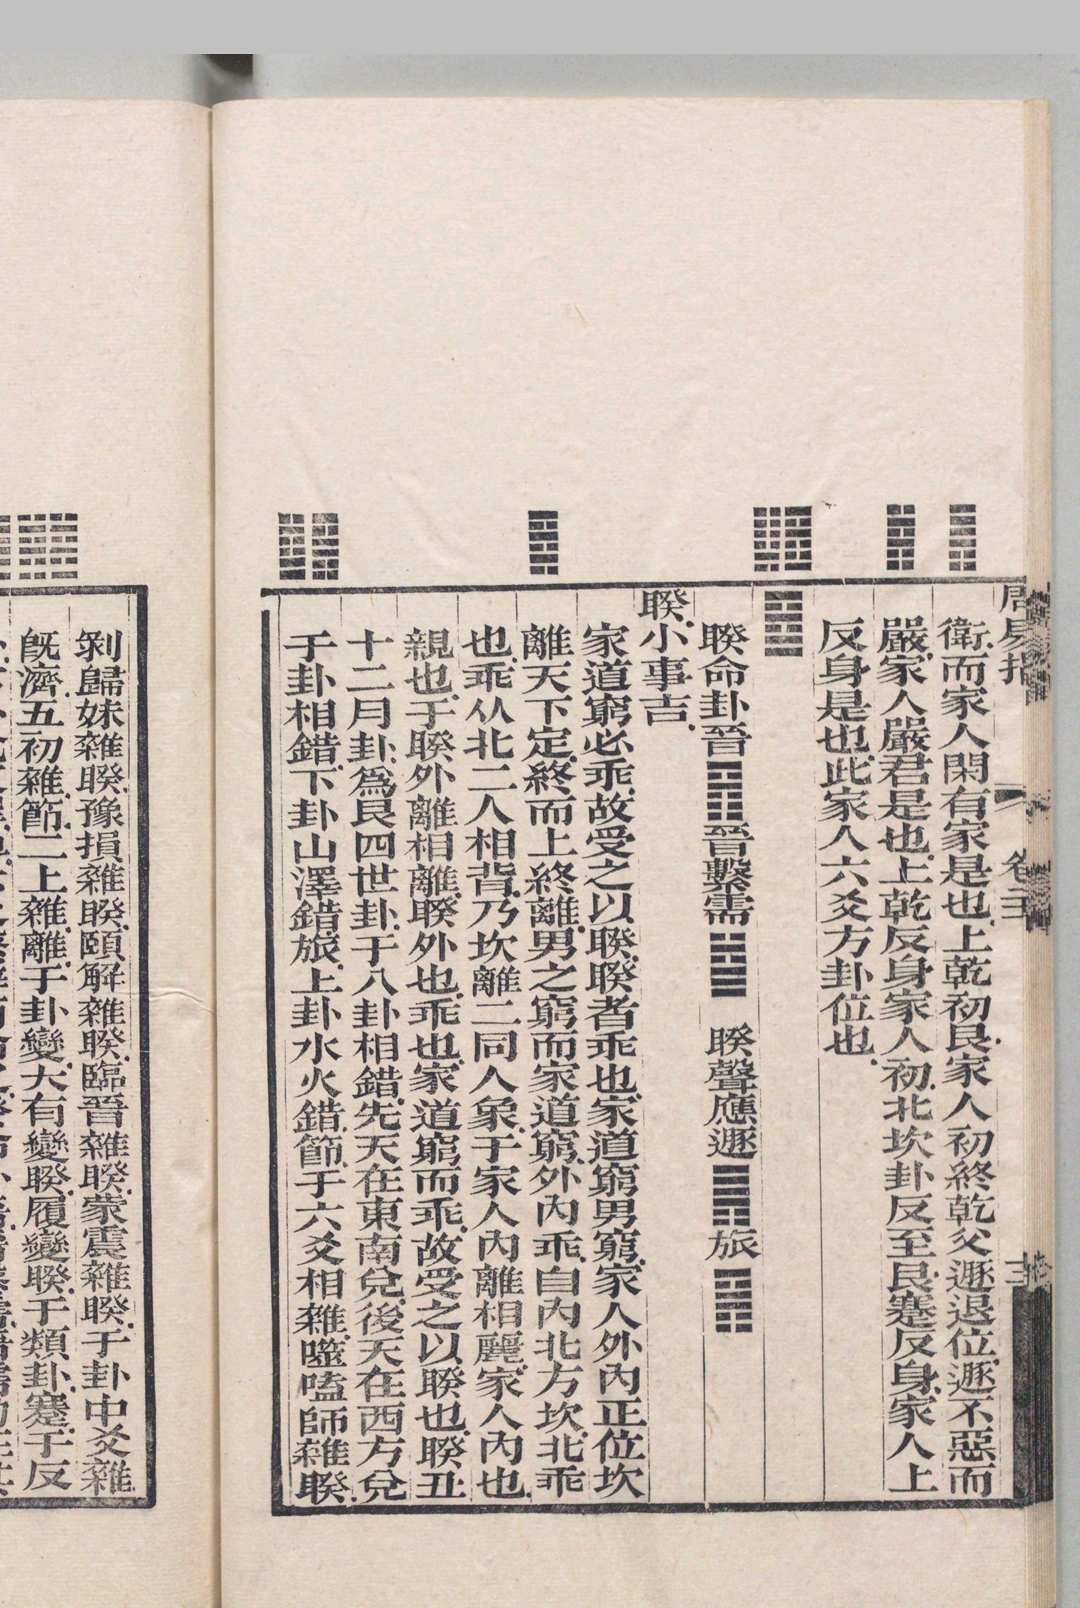 周易指 卷二十
衛.而家人閑有家是也.上乾初艮.家人初終乾父遯退位.遯不惡而
嚴.家人嚴君是也.上乾反身家人初.北坎卦反至艮蹇反身.家人上
反身是也.此家人六爻方卦位也.
䷥
睽命卦晉䷢晉繫需䷄ 睽聲應遯䷠旅䷷
睽.小事吉.
家道窮必乖.故受之以睽.睽者乖也.家道窮男窮.家人外內正位.坎
離天下定.終而上終離.男之窮而家道窮.外內乖.自內北方坎.北乖
也.乖从北二人相背.乃坎離二同人象.于家人內離相麗.家人內也.
親也.于睽外離相離.睽外也.乖也.家道窮而乖.故受之以睽也.睽丑
十二月卦.爲艮四世卦.于八卦相錯.先天在東南兌.後天在西方兌.
于卦相錯.下卦山澤錯旅.上卦水火錯節.于六爻相雜.噬嗑師雜睽.
剝歸妹雜睽.豫損雜睽.頤解雜睽.臨晉雜睽.蒙震雜睽.于卦中爻雜
旣濟.五初雜節.二上雜離.于卦變大有變睽.履變睽.于類卦蹇.于反